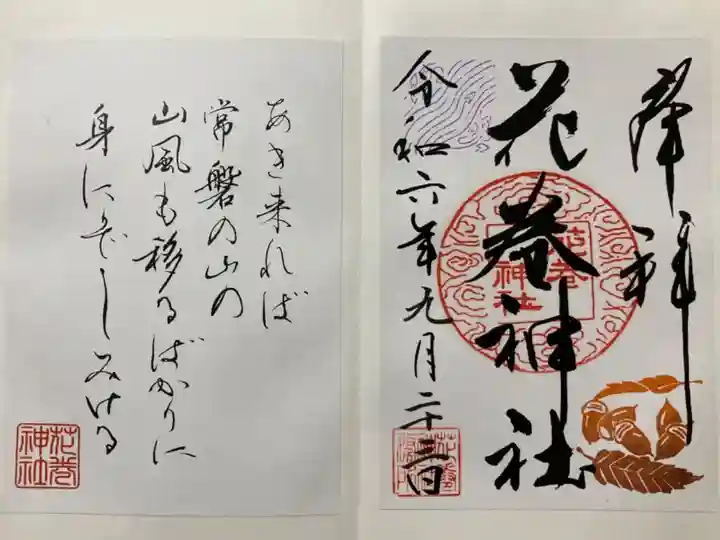 奉拝
花巻神社
令和六年九月二十三日
花巻
神社
あき来れば
常磐の山の
山風も移るばかりに
身にぞしみける
花巻
神社